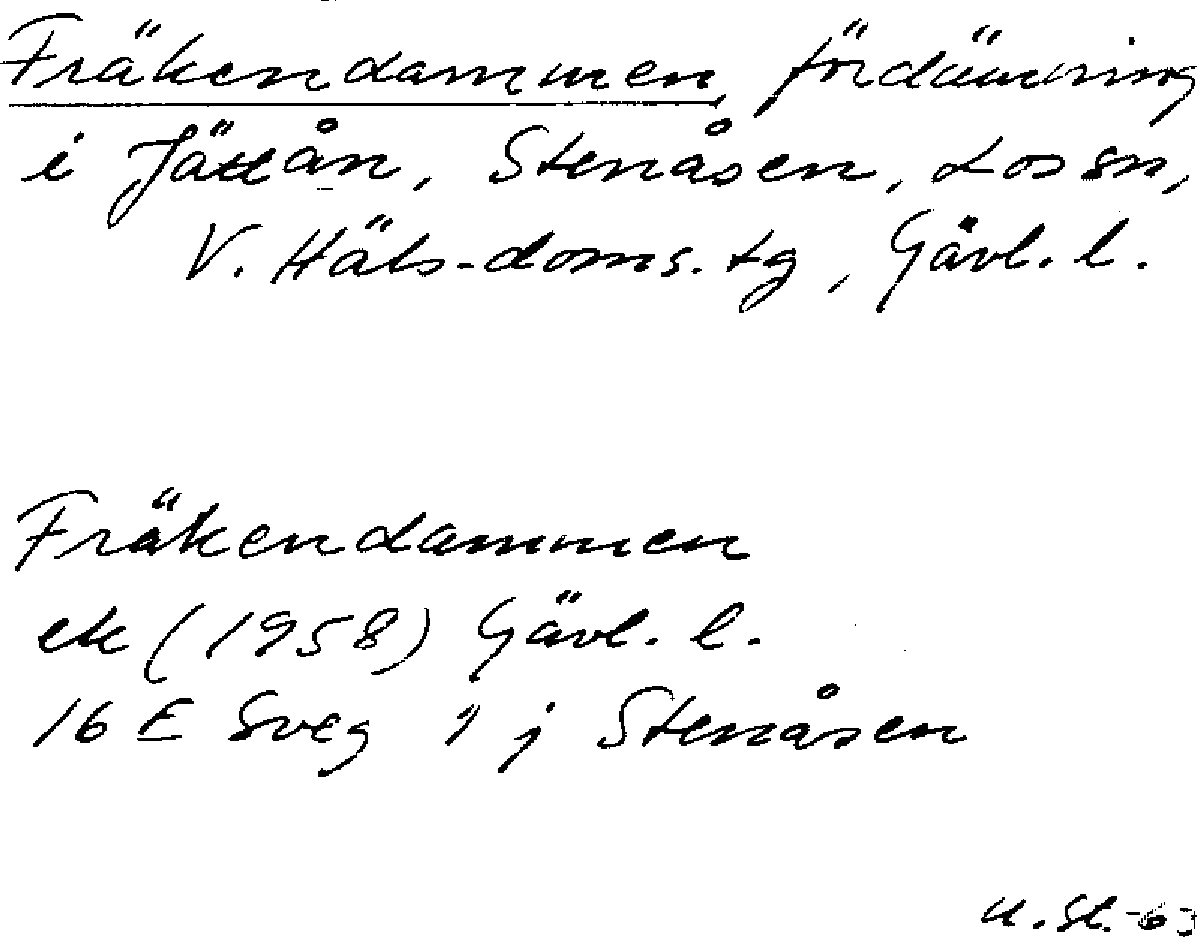 Fräkendammen, fördämning
i Jättån, Stenåsen, Los sn,
V. Häls. doms. tg, Gävl. l.
Fräkendammen
ek (1958) Gävl. l.
16 E Sveg 1 j Stenåsen
U. St. -63